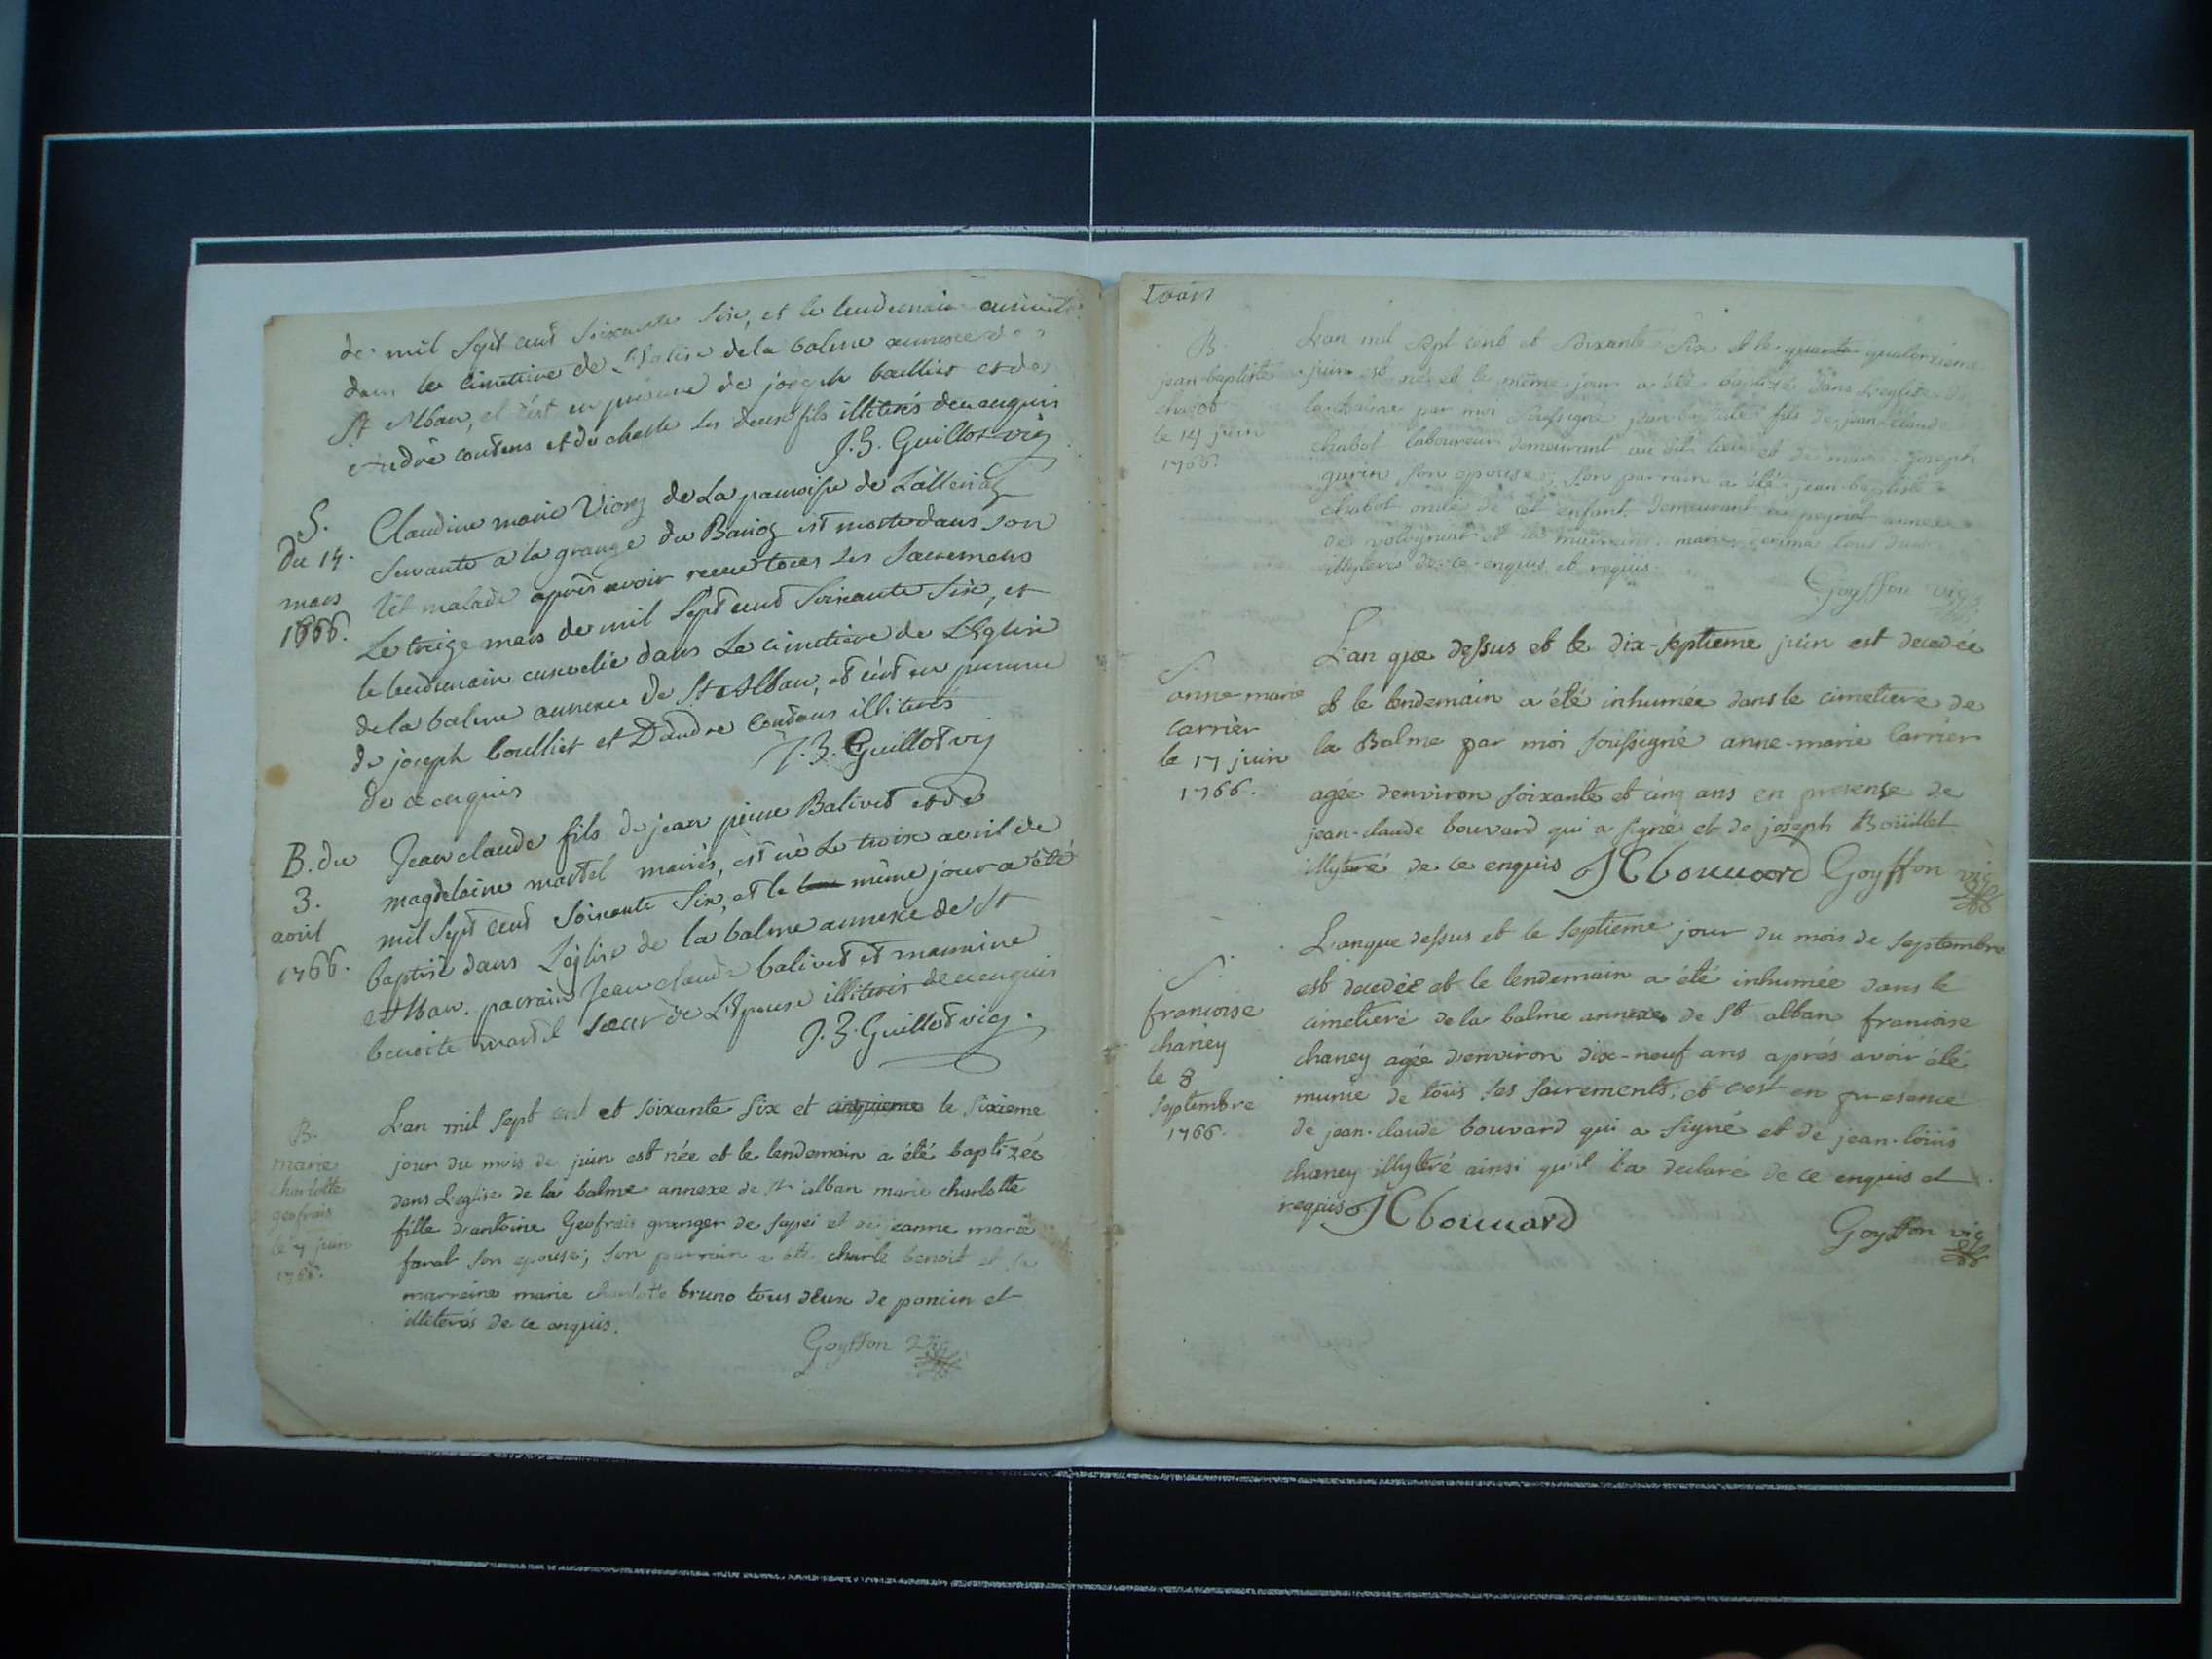 de mil sept cent soixante six, et le lendemain
dans le cimetiere de L'Eglise de la balme annexe de
St Alban, et c'est en presence de joseph
andré coutens et de ses deux fils illiterés de ce enquis
J. B. Guillot vic
S.
du 14.
mars
1766.
Claudine marie Viony de La parroisse de
servante a la grange du est morte dans son
lit malade après avoir receue tous Les Sacremens
Le treize mars de mil sept cent soixante six, et
le lendemain ensevelie dans Le cimetiere de L'Eglise
de la balme annexe de St Alban, et c'est en presence
de joseph boulliet et D'andre coutens illiterés
de ce enquis
J. B. Guillot vic
B. du
3.
avril
1766.
Jean claude fils de jean pierre Balivet et de
magdelaine martel mariés, est né Le trois avril de
mil sept cent soixante six, et le même jour a été
baptisé dans L'église de la balme annexe de St
Alban. parrain Jean claude balivet et marraine
benoite martel soeur de L'Epouse illiterés de ce enquis
J. B. Guillot vic.
B.
marie
charlotte
geofrais
le 7 juin
1766.
L'an mil sept cent et soixante six et cinquieme le sixieme
jour du mois de juin est née et le lendemain a été baptizée
dans L'eglise de la balme annexe de st alban marie charlotte
fille d'antoine Geofrais granger de sapei et de jeanne marie
favat son epouse; son parrain a été charle benoit et sa
marreine marie charlotte bruno tous deux de poncin et
illiterés de ce enquis.
Goyffon vic
trois
B.
jean-baptiste
chabot
le 14 juin
1766.
L'an mil sept cent et soixante six et le quatorzieme
juin est né et le même jour a été baptizé dans L'eglise de
la balme par moi soussigné jean-baptiste fils de jean-claude
chabot laboureur demeurant au dit lieu et de marie-joseph
gurin son epouse; son parrain a été jean-baptiste
chabot oncle de cet enfant demeurant a peyriat annexe
de volognat et la marraine marie tous deux
illyterés de ce enquis et requis
Goyffon vic
S.
anne-marie
carrier
le 17 juin
1766.
L'an que dessus et le dix-septieme juin est decedée
et le lendemain a été inhumée dans le cimetiere de
la Balme par moi soussigné anne-marie Carrier
agée d'environ soixante et cinq ans en presense de
jean-claude bouvard qui a signé et de joseph Boüillet
illyteré de ce enquis JC bouuard Goyffon vic
S.
francoise
chaney
le 8
septembre
1766.
L'an que dessus et le septieme jour du mois de septembre
est decedée et le lendemain a été inhumée dans le
cimetieré de la balme annexe de st alban francoise
chaney agée d'environ dix-neuf ans aprés avoir été
munie de tous ses sacrements; et c'est en presence
de jean-claude bouvard qui a signé et de jean-loüis
chaney illyteré ainsi qu'il l'a declaré de ce enquis et
requis JC bouuard
Goyffon vic